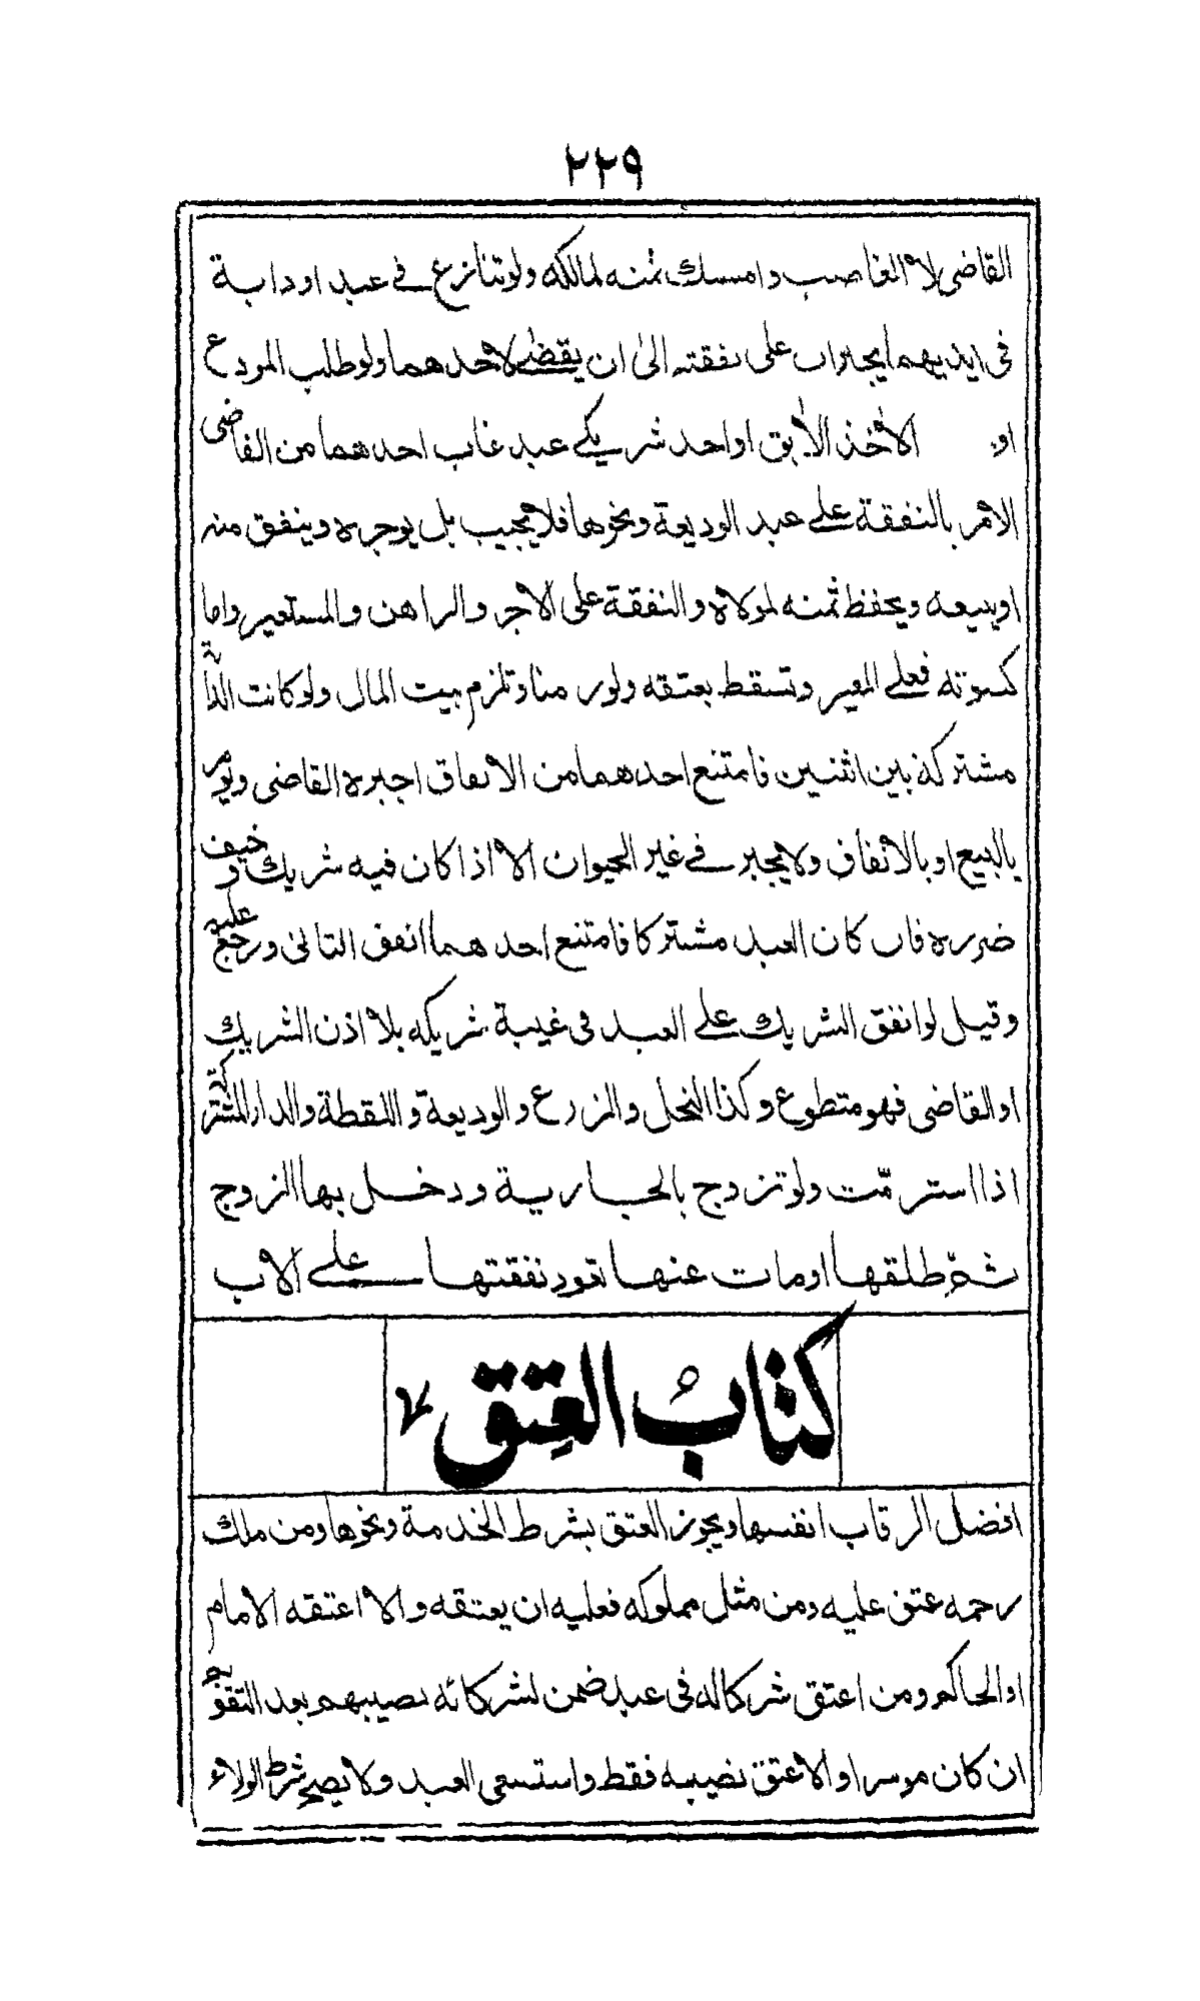 ٢٢٩
القاضى لا الغاصب وامسك ثمنه لمالكه ولو تنازع فى عبد او دابة
فى ايديهما يجبران على نفقته الى ان يقضى لاحدهما ولو طلب المودع
او الآخذ الآبق او احد شريكى عبد غاب احدهما من القاضى
الامر بالنفقة على عبد الوديعة ونحوها فلا يجيب بل يوجره وينفق منه
او يبيعه ويحفظ ثمنه لمولاه والنفقة على الآجر والراهن والمستعير واما
كسوته فعلى المعير وتسقط بعتقه ولو زمنا وتلزم بيت المال ولو كانت الدابة
مشتركة بين اثنين فامتنع احدهما من الانفاق اجبره القاضى ويومر
بالبيع او بالانفاق ولا يجبر فى غير الحيوان الا اذا كان فيه شريك وخيف
ضرره فان كان العبد مشتركا فامتنع احدهما انفق الثانى ورجع عليه
وقيل لو انفق الشريك على العبد فى غيبة شريكه بلا اذن الشريك
او القاضى فهو متطوع وكذا النخل والزرع والوديعة واللقطة والدار المشتركة
اذا استرمّت ولو تزوج بالجارية ودخل بها الزوج
ثمّ طلقها او مات عنها تعود نفقتها على الاب
كتابُ العِتق
افضل الرقاب انفسها ويجوز العتق بشرط الخدمة ونحوها ومن ملك
رحمه عتق عليه ومن مثل مملوكه فعليه ان يعتقه والا اعتقه الامام
او الحاكم ومن اعتق شركا له فى عبد ضمن لشركائه نصيبهم بعد التقويم
ان كان موسرا والا عتق نصيبه فقط واستسعى العبد ولا يصح شرط الولاء